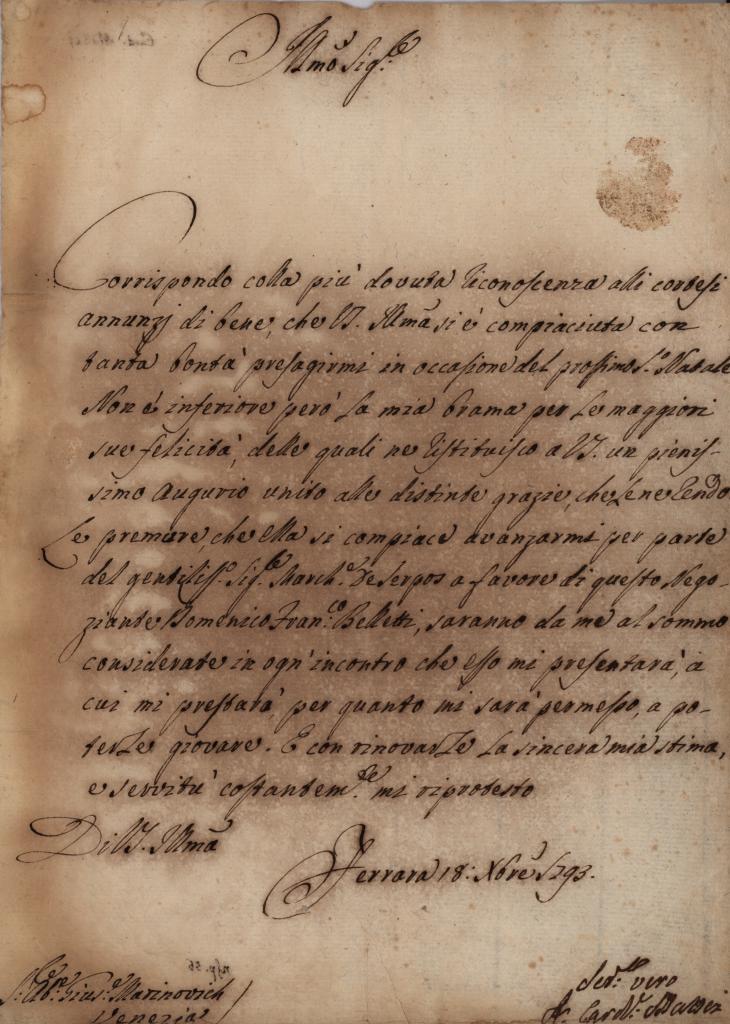 Illmo Sigre
Corrispondo colla più dovuta riconoscenza alli cortesi
annunzj di bene, che V.S. Illma si è compiaciuta con
tanta bontà presagirmi in occasione del prossimo S.o Natale
Non è inferiore però la mia brama per le maggiori
sue felicità, delle quali ne restituisco a V.S. un pienis-
simo Augurio unito alle distinte grazie, che Le ne rendo
Le premure, che ella si compiace avanzarmi per parte
del gentiliss.o Sig.re March.e De Serpos a favore di questo Nego-
ziante Domenico Fran.co Belletti, saranno da me al sommo
considerate in ogn'incontro che esso mi presentarà, a
cui mi prestarà, per quanto mi sarà permesso, a po-
terLe giovare. E con rinovarLe la sincera mia stima,
e servitù costantem.te mi riprotesto
Di V.S. Illma
Ferrara 18: Xbre 1793.
Marinovich
Venezia
Ser.re vero
Card.le Mattei